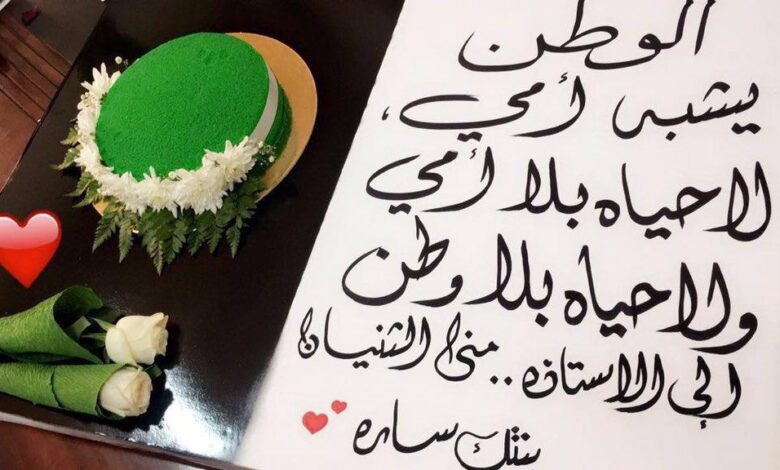 الوطن
يشبه أمي،
لا حياه بلا أمي
ولا حياه بلا وطن
الى الاستاذه .. منى الثنيان
بنتك ساره